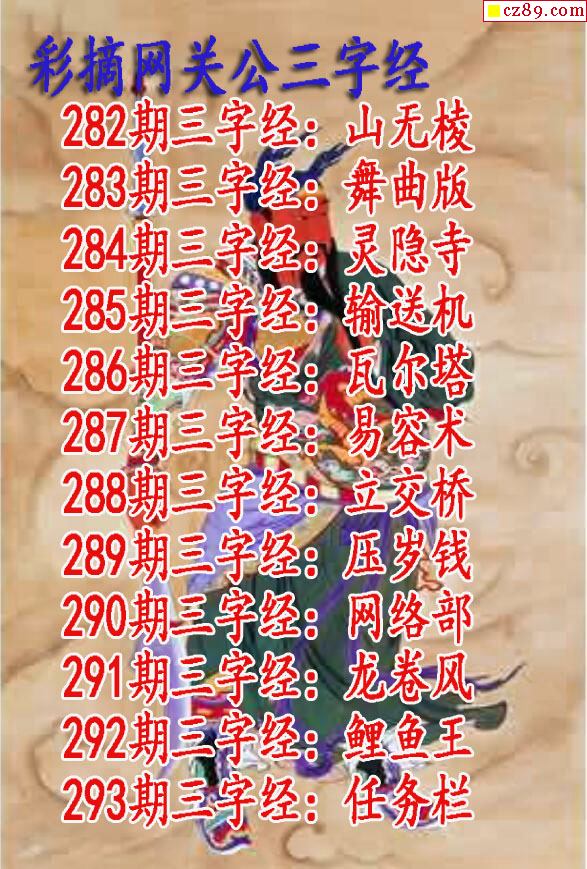 cz89.com
彩摘网关公三字经
282期三字经：山无棱
283期三字经：舞曲版
284期三字经：灵隐寺
285期三字经：输送机
286期三字经：瓦尔塔
287期三字经：易容术
288期三字经：立交桥
289期三字经：压岁钱
290期三字经：网络部
291期三字经：龙卷风
292期三字经：鲤鱼王
293期三字经：任务栏